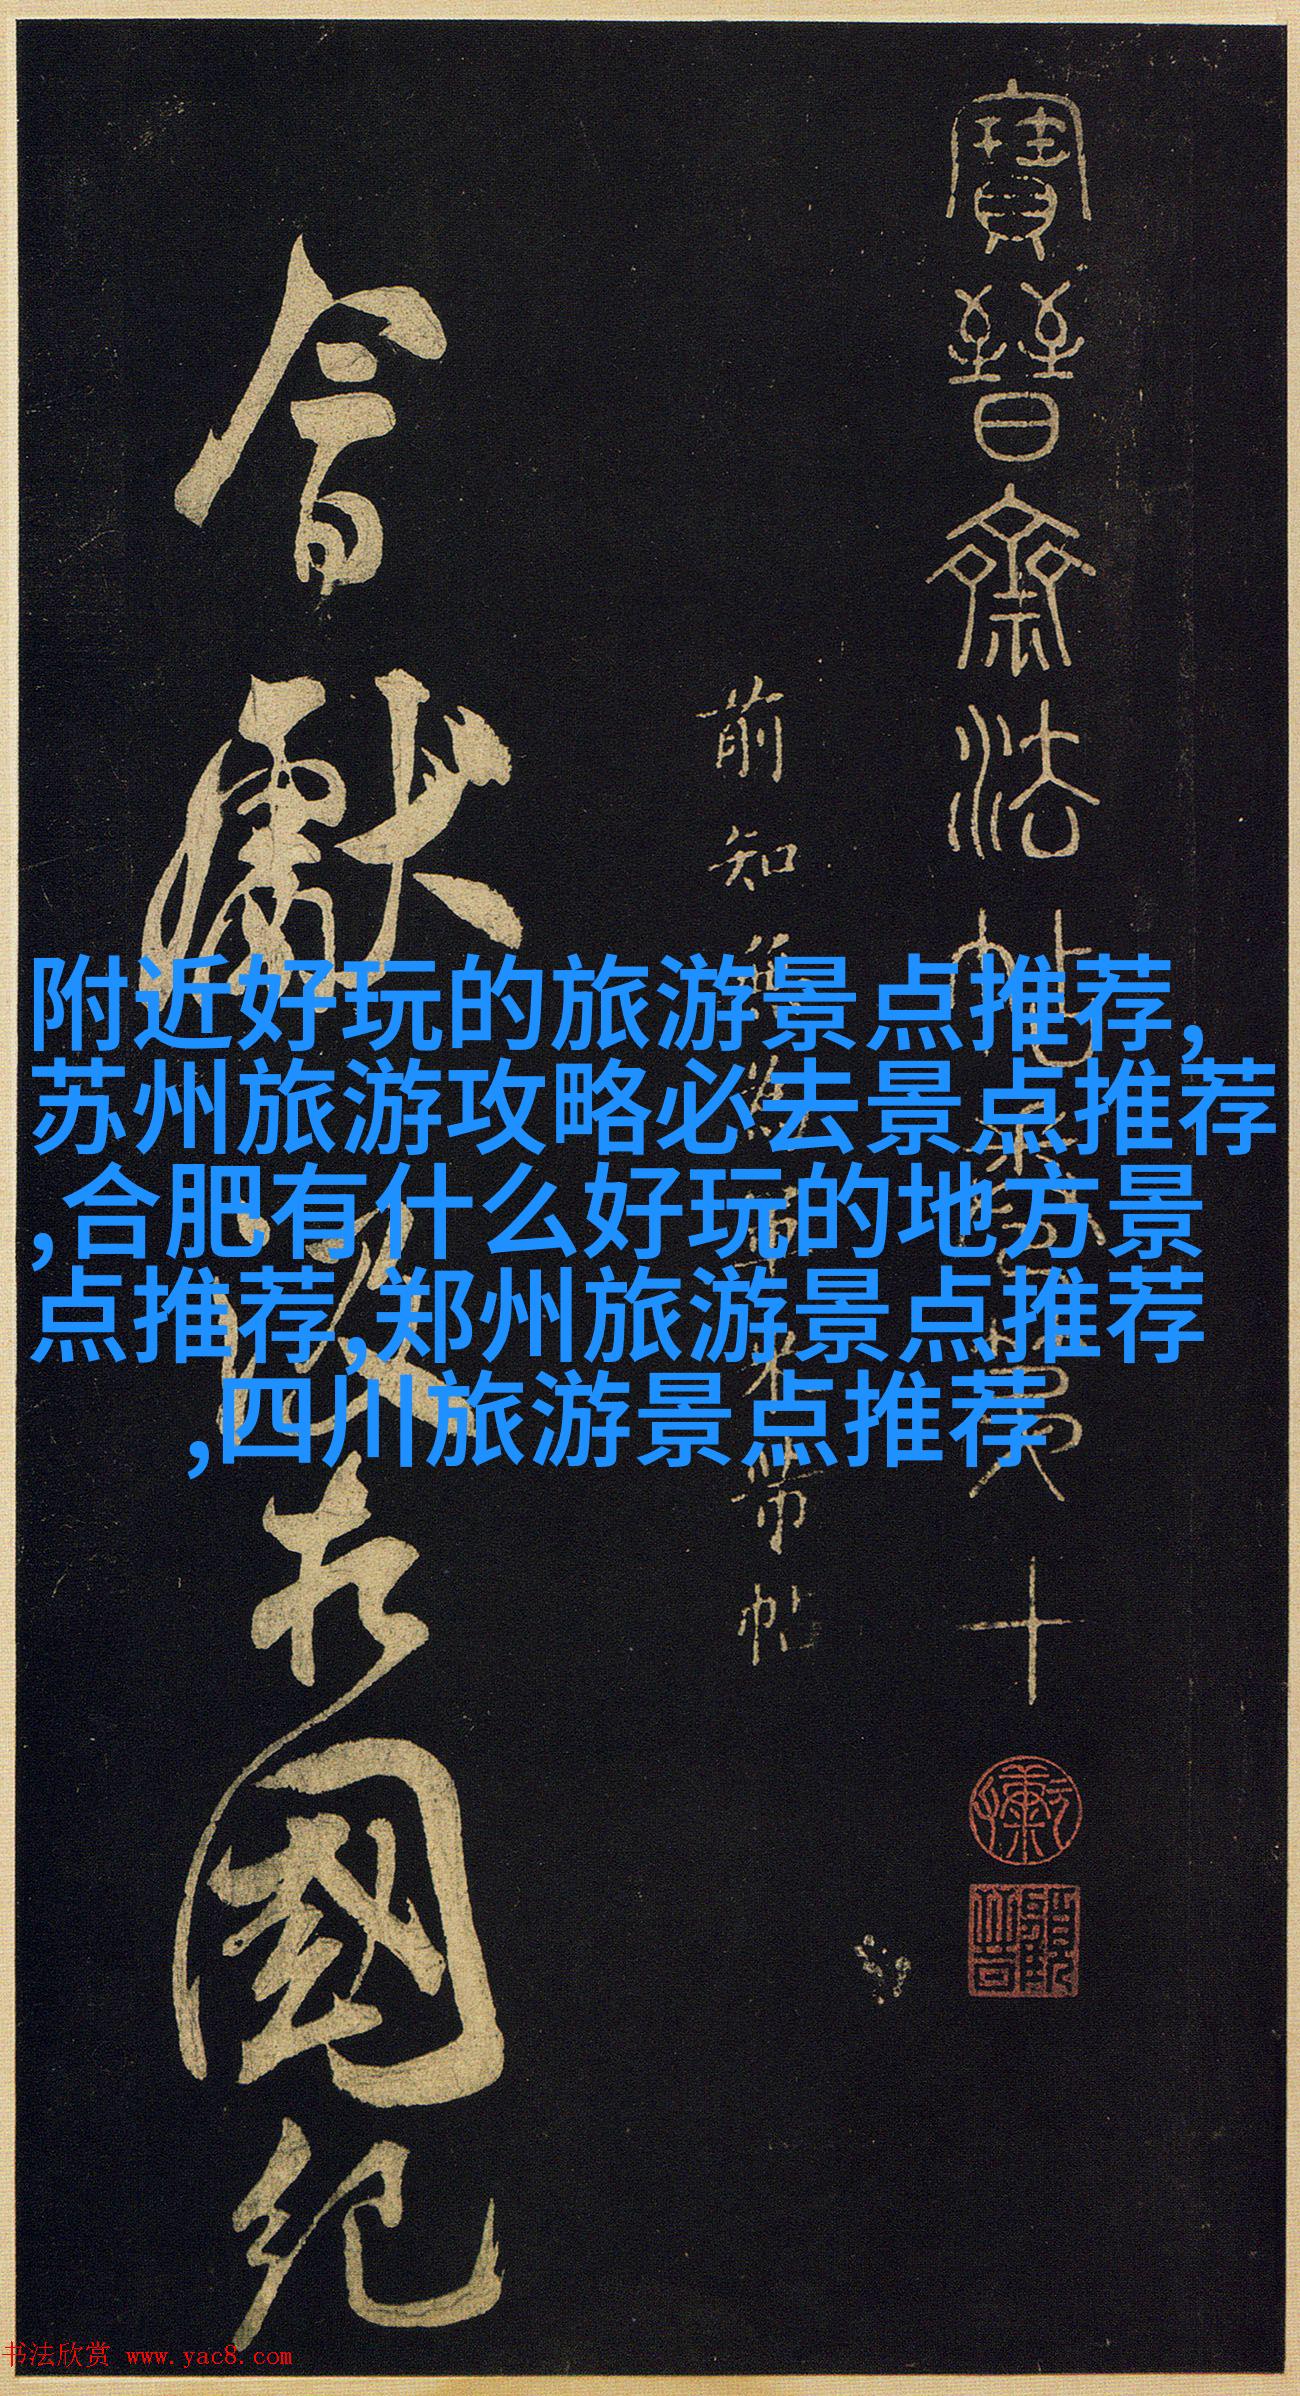 寶晉齋法帖卷第十
前知無為軍米芾帖
今獻
國紀
附近好玩的旅游景点推荐,
苏州旅游攻略必去景点推荐
,合肥有什么好玩的地方景
点推荐,郑州旅游景点推荐
,四川旅游景点推荐
书法欣赏 www.yac8.com